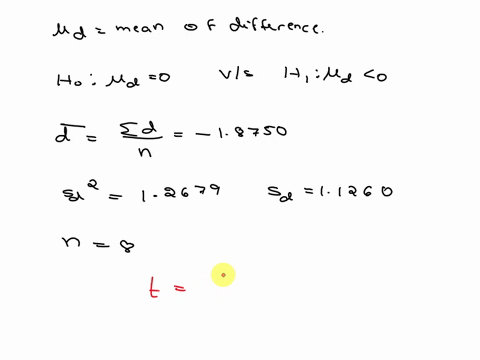 μd = mean of difference.
H₀ : μd = 0 v/s H₁ : μd < 0
d̄ = Σd/n = -1.8750
sd² = 1.2679 sd = 1.1260
n = 8
t =